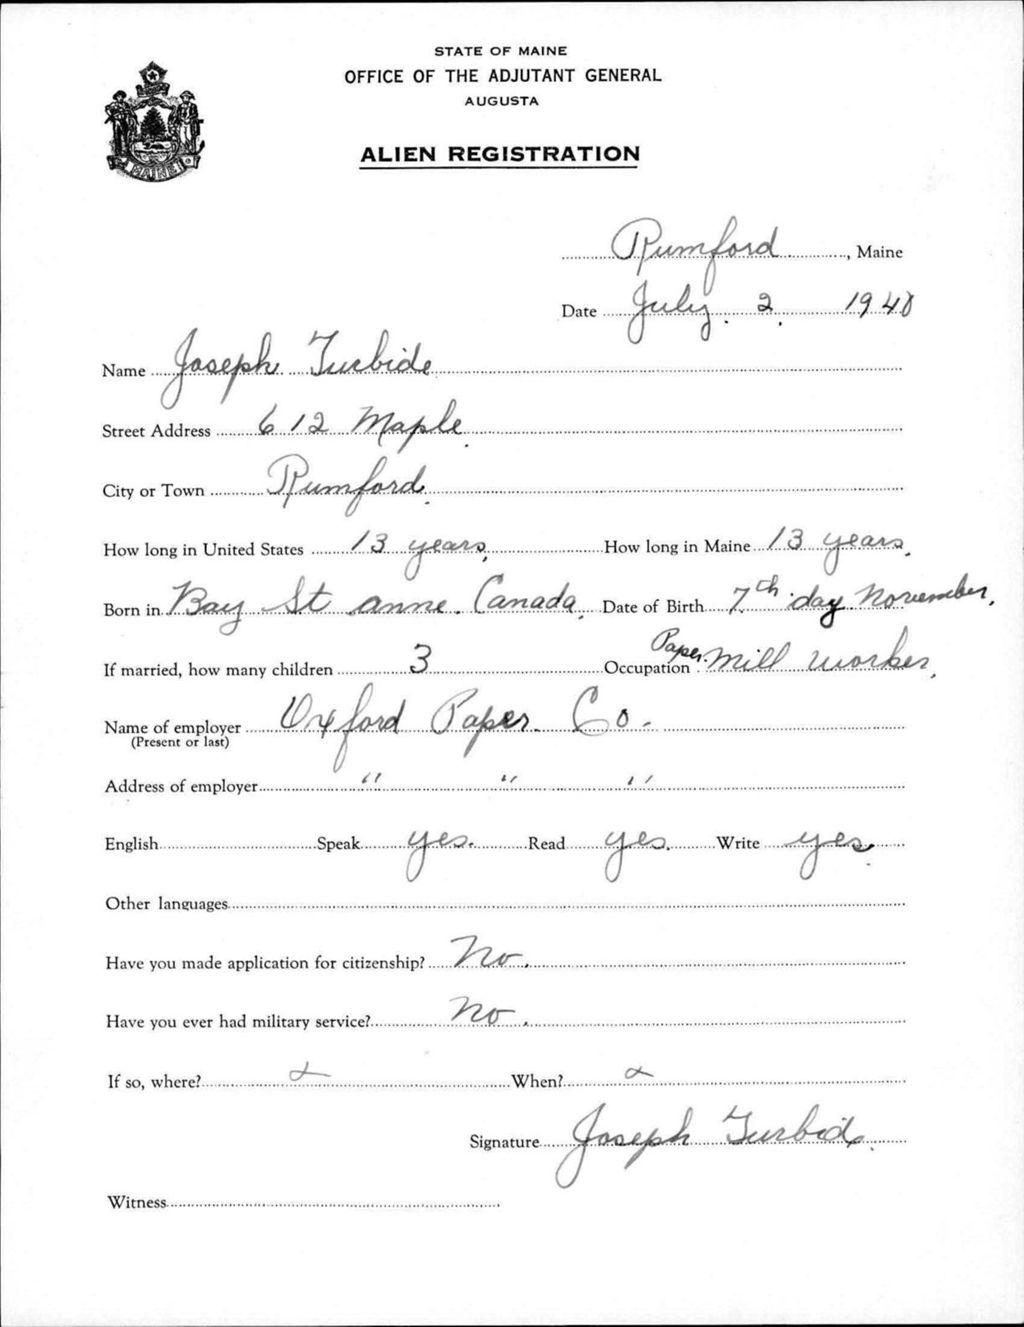 STATE OF MAINE
OFFICE OF THE ADJUTANT GENERAL
AUGUSTA
ALIEN REGISTRATION
MAINE
Rumford, Maine
Date July 2, 1940
Name Joseph Turbide
Street Address 612 Maple
City or Town Rumford
How long in United States 13 years How long in Maine 13 years
Born in Bay St anne. Canada Date of Birth 7th day November
If married, how many children 3 Occupation Paper Mill worker
Name of employer Oxford Paper Co.
(Present or last)
Address of employer " " "
English Speak yes. Read yes. Write yes
Other languages
Have you made application for citizenship? No.
Have you ever had military service? No.
If so, where? When?
Signature Joseph Turbide
Witness